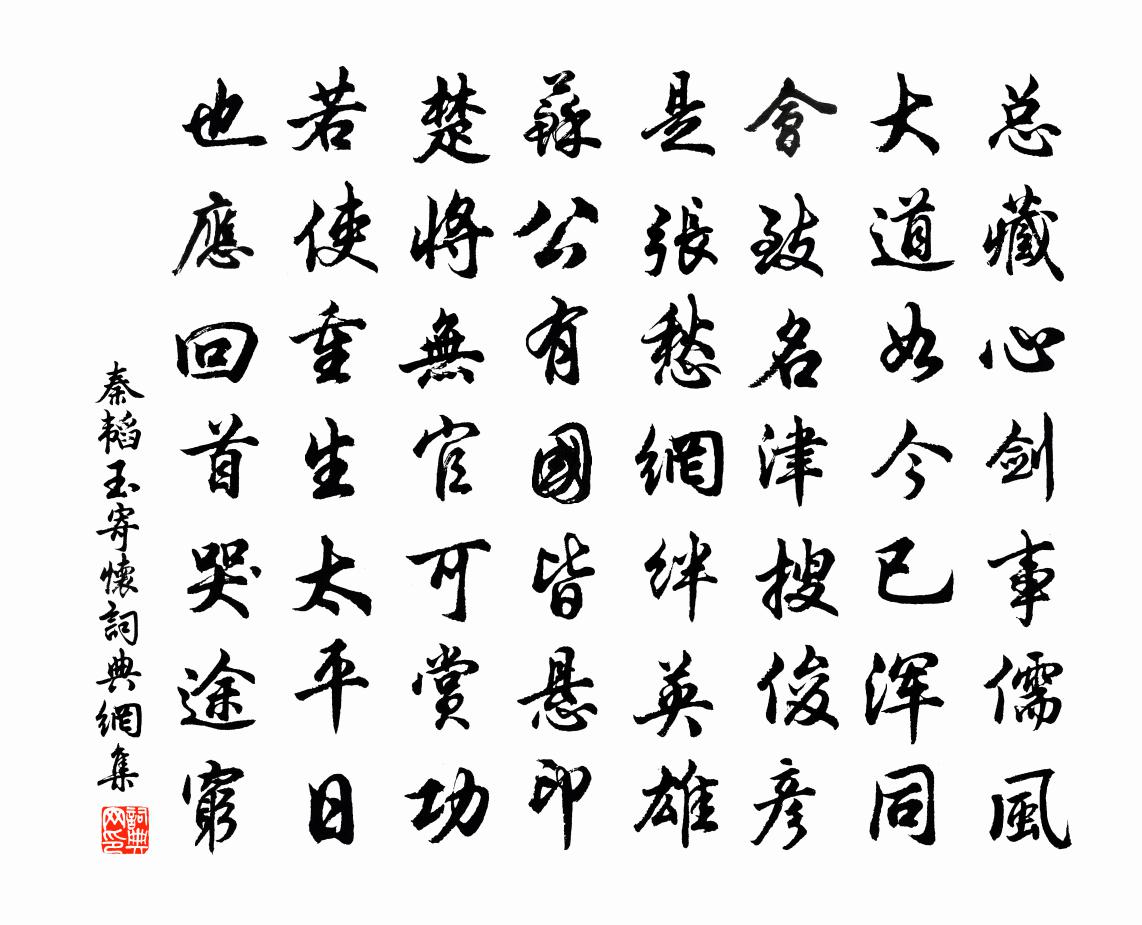 总藏心剑事儒風
大道如今已浑同
會致名津搜俊彦
是張愁網絆英雄
蘇公有國皆悬印
楚將無官可賞功
若使重生太平日
也應回首哭途窮
秦韬玉寄懷詞典網集
詞典网印